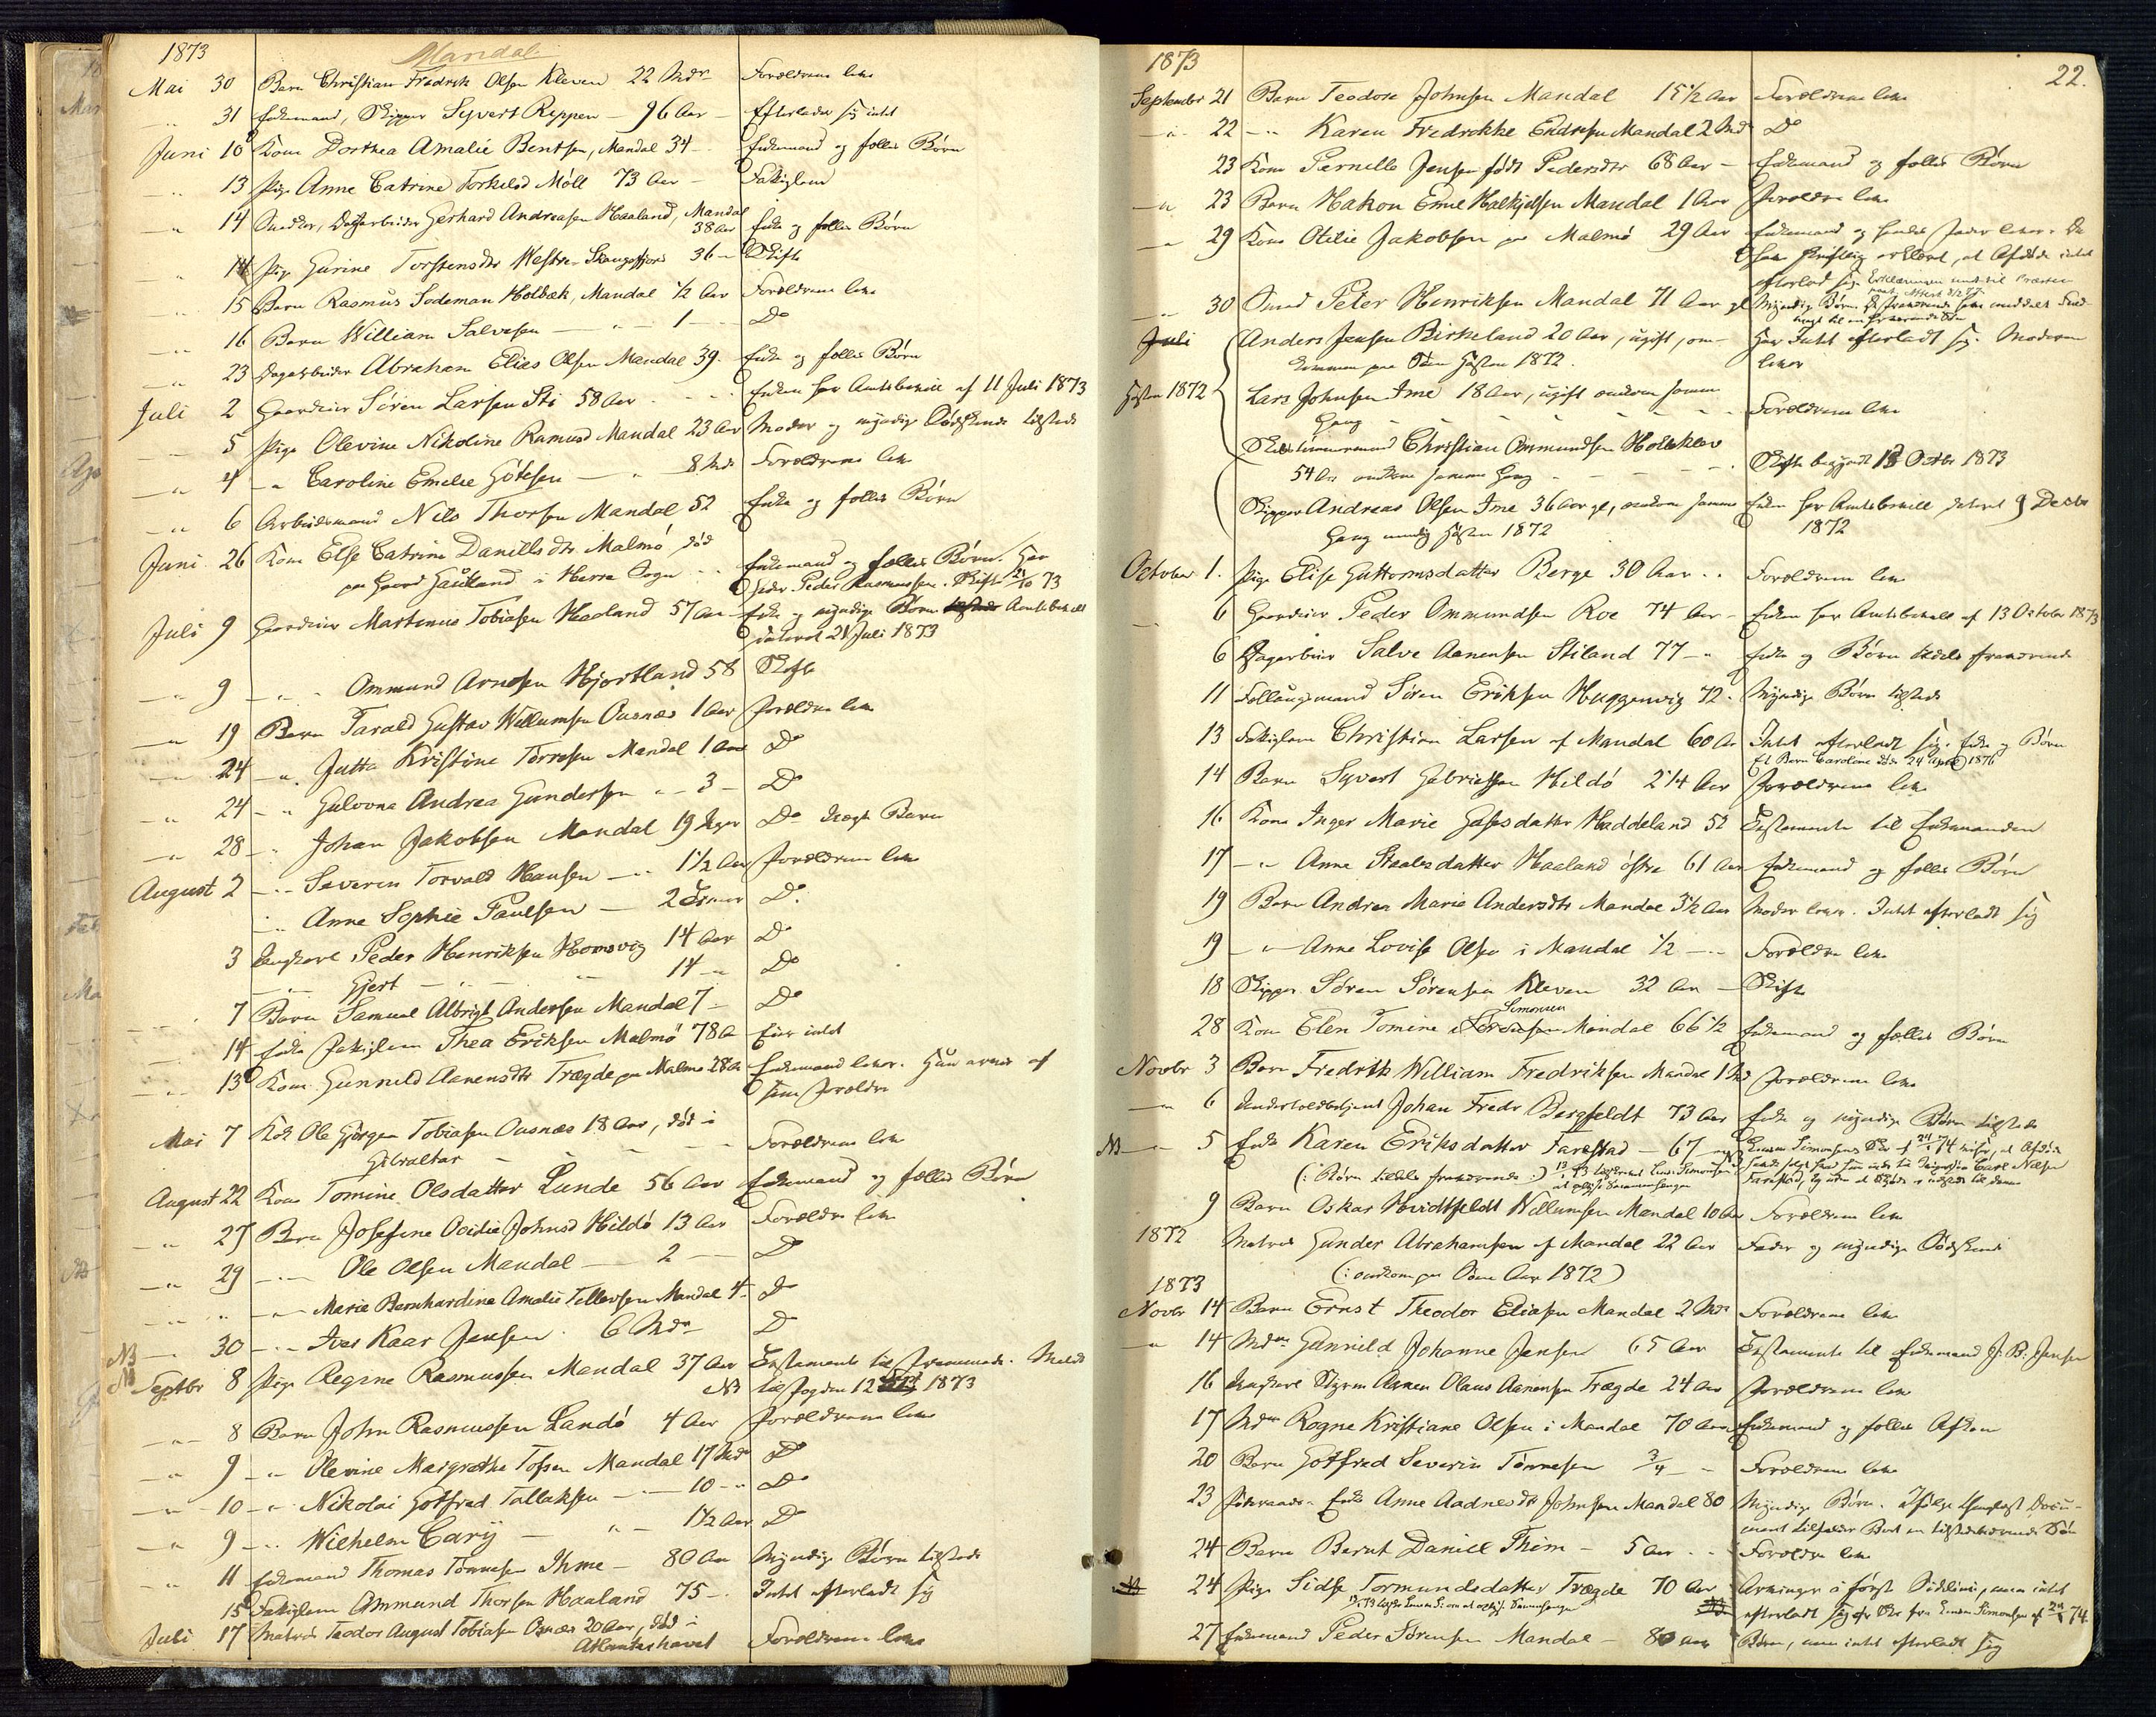 1873
Mandal
Mai 30 Barn Christian Fredrik Olsen Kleven 22 Mdr Forældrene leve
" 31 Enkemand, Skipper Syvert Reppen 96 Aar Efterlader sig intet
Juni 10 Kone Dorthea Amalie Bentsen, Mandal 34 Enkemand og fælles Børn
" 13 Pige Anne Catrine Torkelsd Møll 73 Aar Fattiglem
" 14 Snedker, Gerhard Andreasen Haaland, Mandal 38 Aar Enke og fælles Børn
" 14 Pige Gurine Torstensdtr Westre Skougsfjord 36 Skifte
" 15 Barn Rasmus Sodeman Holbæk, Mandal 1/2 Aar Forældrene leve
" 16 Barn William Salvesen " 1 Do
" 23 Dagarbeider Abraham Elias Olsen Mandal 39 Enke og fælles Børn
Juli 2 Gaardbruger Søren Larsen Sti 58 Aar Enken har Amtsbevill af 11 Juli 1873
" 5 Pige Olevine Nikoline Rasmusd Mandal 23 Aar Moder og myndige Sødskende tilstede
" 4 " Caroline Emelie Gøtesen " 8 Mdr Forældrene leve
" 6 Arbeidsmand Nils Thorsen Mandal 52 Enke og fælles Børn
Juni 26 Kone Else Catrine Daniellsdtr Malmø død
paa Gaard Haukland i Herre Sogn Enkemand og fælles Børn. Han
heder Peder Rasmussen. Skifte 21/10 73
Juli 9 Gaardbruger Martenius Tobiasen Haaland 57 Aar Enke og myndige Børn Amtsbevill
dateret 21 Juli 1873
" 9 " Ommund Arnesen Hjortland 58 Skifte
" 19 Barn Tarald Gustav Willumsen Ousnæs 1 Aar Forældre leve
" 24 " Jutta Kristine Torresen Mandal 1 Aar Do
" 24 " Gulovna Andrea Gundersen " 3 Do
" 28 " Johan Jakobsen Mandal 19 Uger Do uægte Barn
August 2 " Severin Torvald Hansen " 1 1/2 Aar Forældrene leve
" Anne Sophie Paulsen 2 Timer Do
3 Ungkarl Peder Henriksen Homsvig 14 Aar Do
" Gjert " " 14 " Do
7 Barn Samuel Albrigt Andersen Mandal 7 Do
" 14 Enke Fattiglem Thea Eriksen Malmø 78 A Eier intet
" 13 Kone Gunnild Aanensdtr Trægde paa Malmø 28 A Enkemand lever. Hun arves af
sine Forældre
Mai 7 Kok Ole Gjørgen Tobiasen Ousnæs 18 Aar, død i
Gibraltar Forældrene leve
August 22 Kone Tomine Olsdatter Lunde 56 Aar Enkemand og fælles Børn
" 27 Barn Josefine Ovidie Johnsd Hildø 13 Aar Forældre leve
" 29 " Ole Olsen Mandal 2 Do
" " Marie Bernhardine Amalie Tellevsen Mandal 4 Do
NB " 30 " Iver Kaar Jensen 6 Mdr Do
NB Septbr 8 Pige Regine Rasmussen Mandal 37 Aar Testamente til
NB til Fogden 12 1873
" 8 Barn John Rasmussen Landø 4 Aar Forældrene leve
" 9 " Olevine Margrethe Tofsen Mandal 17 Mdr Do
" 10 " Nikolai Gotfred Tallaksen " 10 " Do
" 9 " Wilhelm Cary " 1 1/2 Aar Do
" 11 Enkemand Thomas Tønnesen Ihme 80 Aar Myndige Børn tilstede
15 Fattiglem Ommund Thorsen Haaland 75 Intet efterladt sig
Juli 17 Matros Teodor August Tobiasen Osnæs 20 Aar, død i
Atlanterhavet Forældrene leve
1873
22.
September 21 Barn Teodore Johnsen Mandal 15 1/2 Aar Forældrene leve
" 22 " Karen Fredrikke Endresen Mandal 2 Mdr Do
23 Kone Pernille Jensen født Pedersdtr 68 Aar Enkemand og fælles Børn
" 23 Barn Hakon Emil Halkjelsen Mandal 1 Aar Forældre leve
" 29 Kone Otilie Jakobsen paa Malmø 29 Aar Enkemand og hendes Fader lever. De
har skriftlig erklæret, at Afdøde intet
efterlod sig. Erklæringen sendt til Præsten
" 30 Smed Peter Henriksen Mandal 71 Aar gl Myndige Børn
Juli Anders Jensen Birkeland 20 Aar, ugift, om-
kommen paa Søen Høsten 1872. Har Intet efterladt sig. Moderen
lever
Høsten 1872 Lars Johnsen Ime 18 Aar, ugift omkom samme
Gang Forældrene leve
Skibstømmermand Christian Ommundsen Holskløv
54 Aar omkom samme Gang Skifte begyndt 13 Octbr 1873
Skipper Andreas Olsen Ime 36 Aar gl, omkom samme Enken har Amtsbevill dateret 9 Decbr
Gang nemlig Høsten 1872 1872
October 1. Pige Elise Guttormsdatter Berge 30 Aar Forældrene leve
" 6 Gaardbruger Peder Ommundsen Roe 74 Aar Enken har Amtsbevill af 13 October 1873
6 Salve Aanensen Stiland 77 " Enke og Børn tildels fraværende
11 Føllaugsmand Søren Eriksen Huggenvig 72 Myndige Børn tilstede
13 Fattiglem Christian Larsen af Mandal 60 Aar Intet efterladt sig. Enke og Børn
Et Barn Caroline døde 24 April 1876
14 Barn Syvert Gabrielsen Hildø 2 1/4 Aar Forældrene leve
16 Kone Inger Marie Gasesdatter Haddeland 52 Testamente til Enkemanden
17 " Anne Staalesdatter Haaland østre 61 Aar Enkemand og fælles Børn
19 Barn Andrea Marie Andersdtr Mandal 3 1/2 Aar Moder lever. Intet efterladt sig
19 " Anne Lovise Olsen i Mandal 1/2 " Forældre leve
18 Skipper Søren Sørensen Kleven 32 Aar Skifte
Simonsen
28 Kone Elen Tomine Sørensen Mandal 66 1/2 Enkemand og fælles Børn
Novbr 3 Barn Fredrik William Fredriksen Mandal 1 Md Forældrene leve
" 6 Undertoldbetjent Johan Fredr Bergfeldt 73 Aar Enke og myndige Børn tilstede
NB " 5 Enke Karen Eriksdatter Farestad 67
(: Børn tildels fraværende :)
9 Barn Oskar Hvidtfeldt Willumsen Mandal 10 Aar Forældrene leve
1872 Matros Gunder Abrahamsen af Mandal 22 Aar Fader og myndige Sødskende
(: omkom paa Søen Aar 1872)
1873
Novbr 14 Barn Ernst Theodor Eliasen Mandal 2 Mdr Forældrene leve
" 14 Mdm Gunnild Johanne Jensen 65 Aar Testamente til Enkemand J. B. Jensen
16 Ungkarl Styrm Aanen Olaus Aanensen Trægde 24 Aar Forældrene leve
17 Mdm Rogne Kristiane Olsen i Mandal 70 Aar Enkemand og fælles Afkom
20 Barn Gotfred Severin Tønnesen 3/4 " Forældrene leve
23 Enke Anne Aadnesdtr Johnsen Mandal 80 Myndige Børn. Ifølge Docu-
ment tilfalder Boet en tilstedeværende Søn
24 Barn Bernt Daniel Thim 5 Aar Forældre leve
24 Pige Sidse Tormundsdatter Trægde 70 Aar Arvinger i første Sidelinie, men intet
efterladt sig
27 Enkemand Peder Sørensen Mandal 80 Aar Børn, men intet efterladt sig